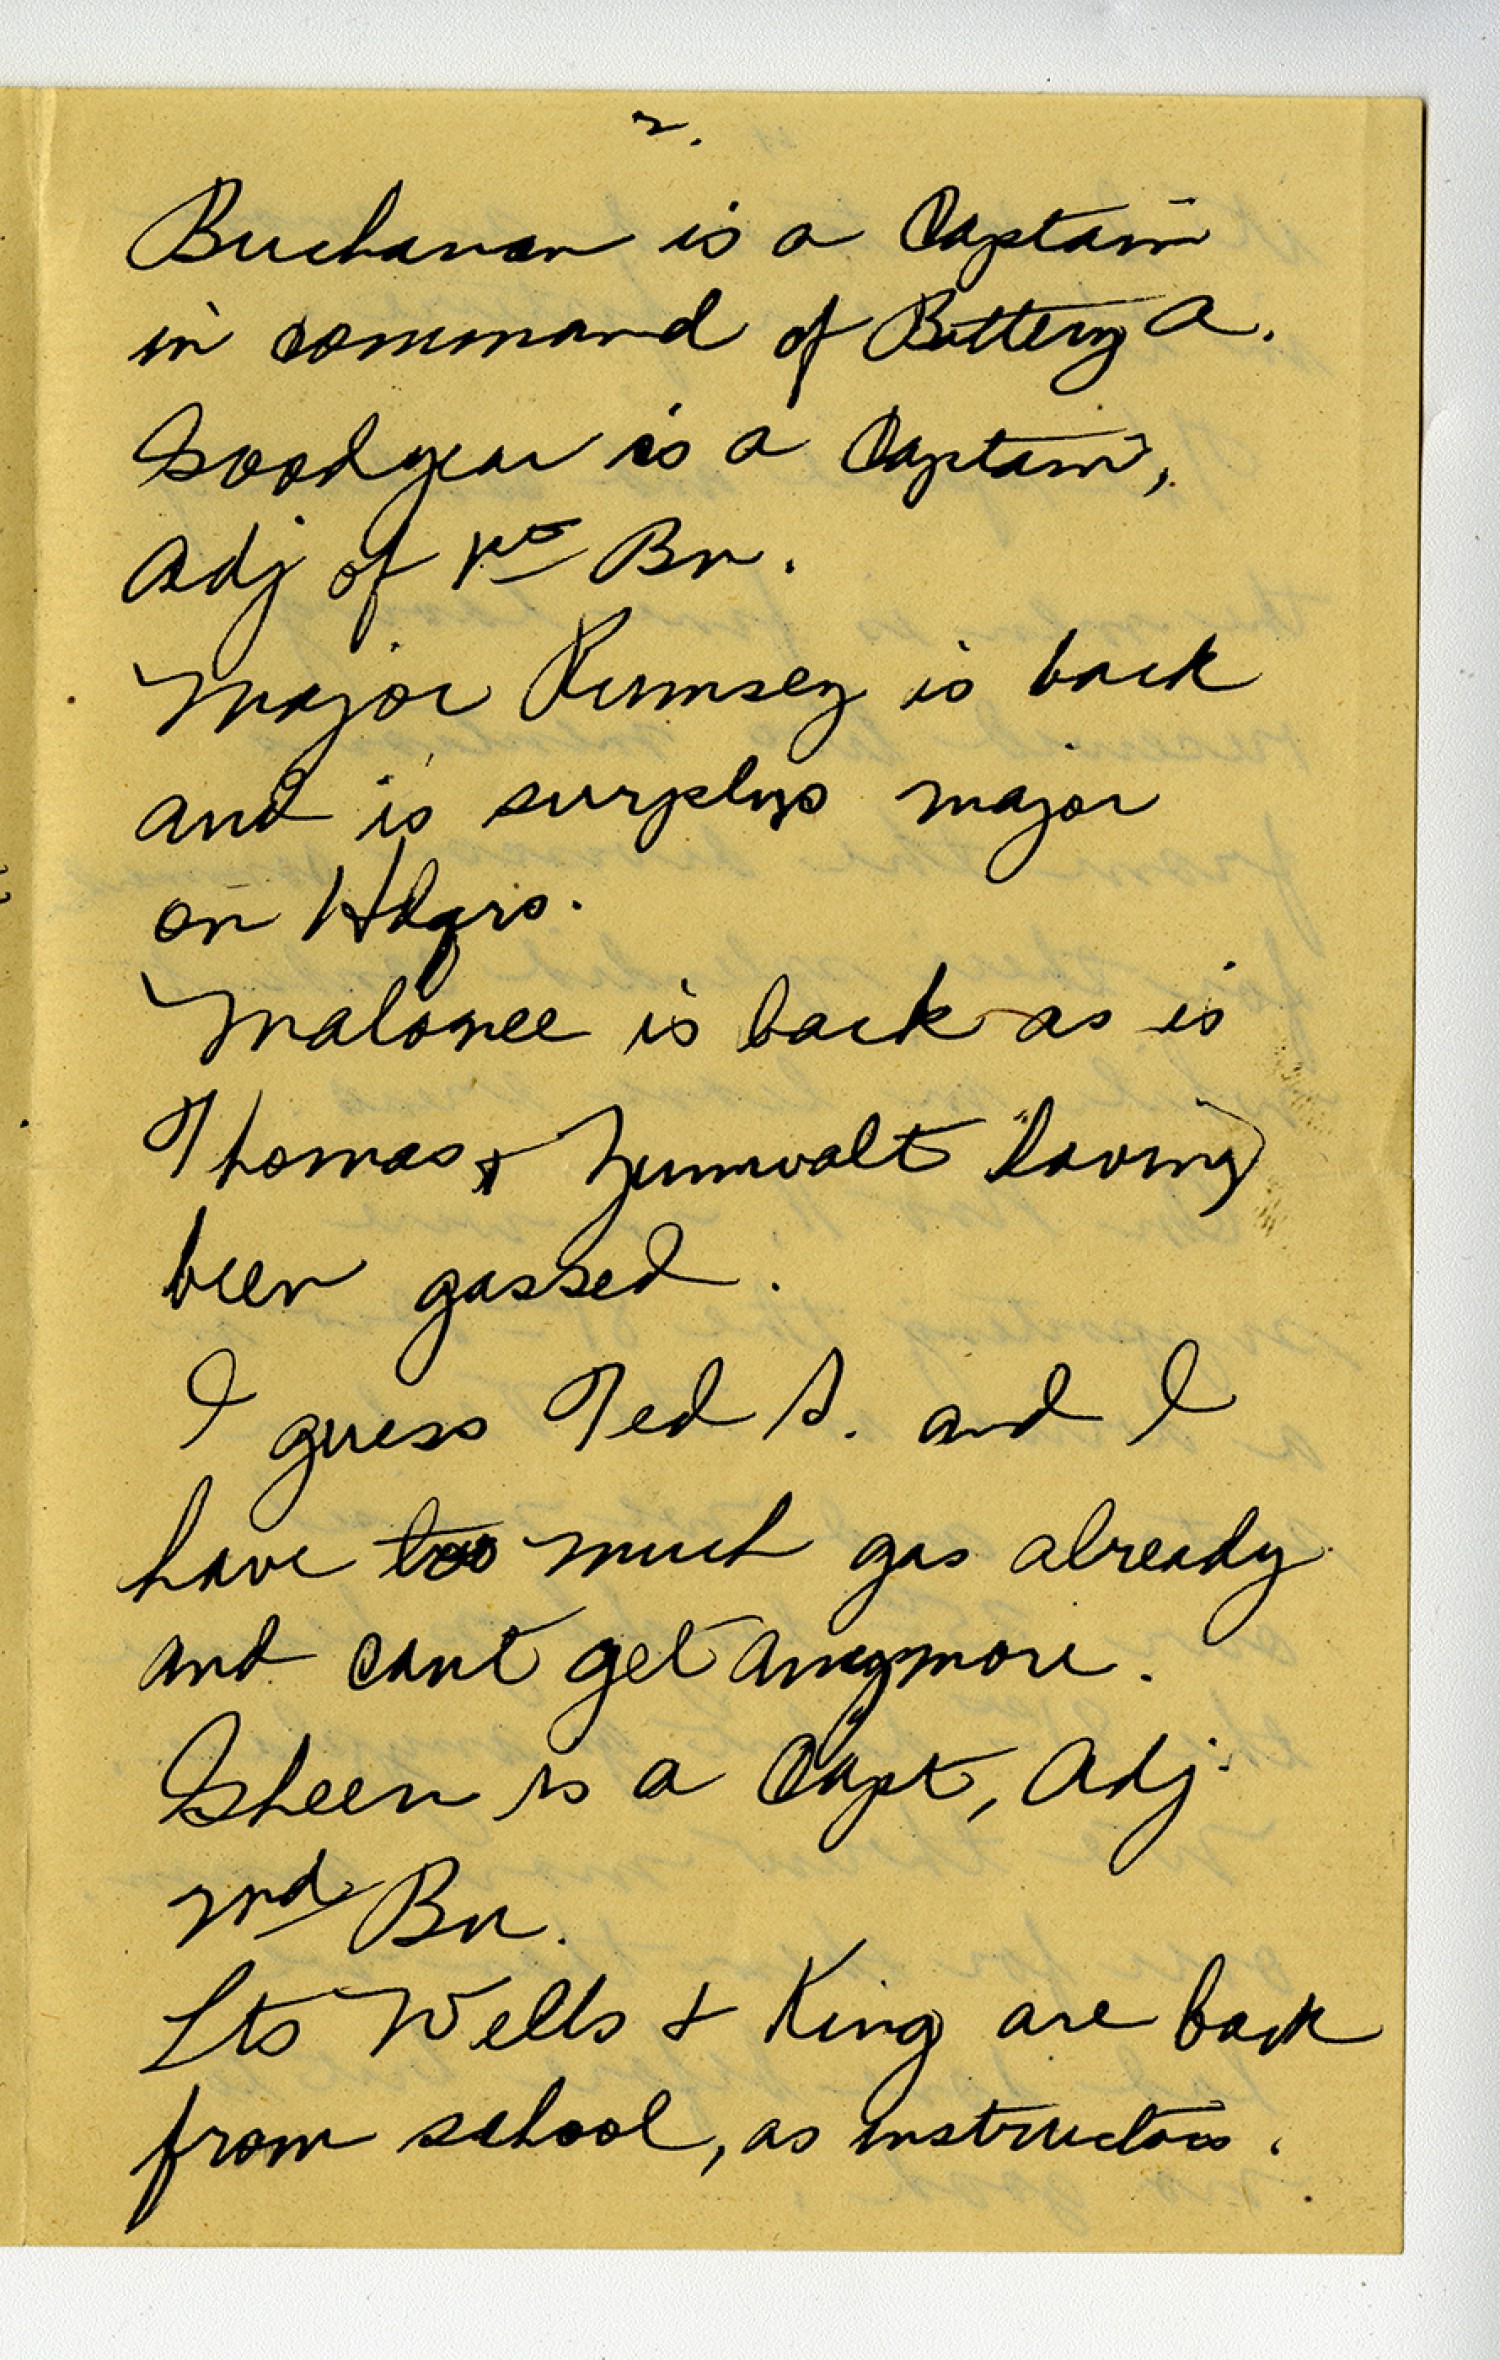 2.
Buchanan is a Captain
in command of Battery A.
Goodyear is a Captain,
Adj of 1st Bn.
Major Rumsey is back
and is surplus major
on Hdqrs.
Malonee is back as is
Thomas & Zumwalt having
been gassed.
I guess Ted S. and I
have too much gas already
and cant get anymore.
Sheen is a Capt, Adj.
2nd Bn.
Lts Wells & King are back
from school, as instructors.